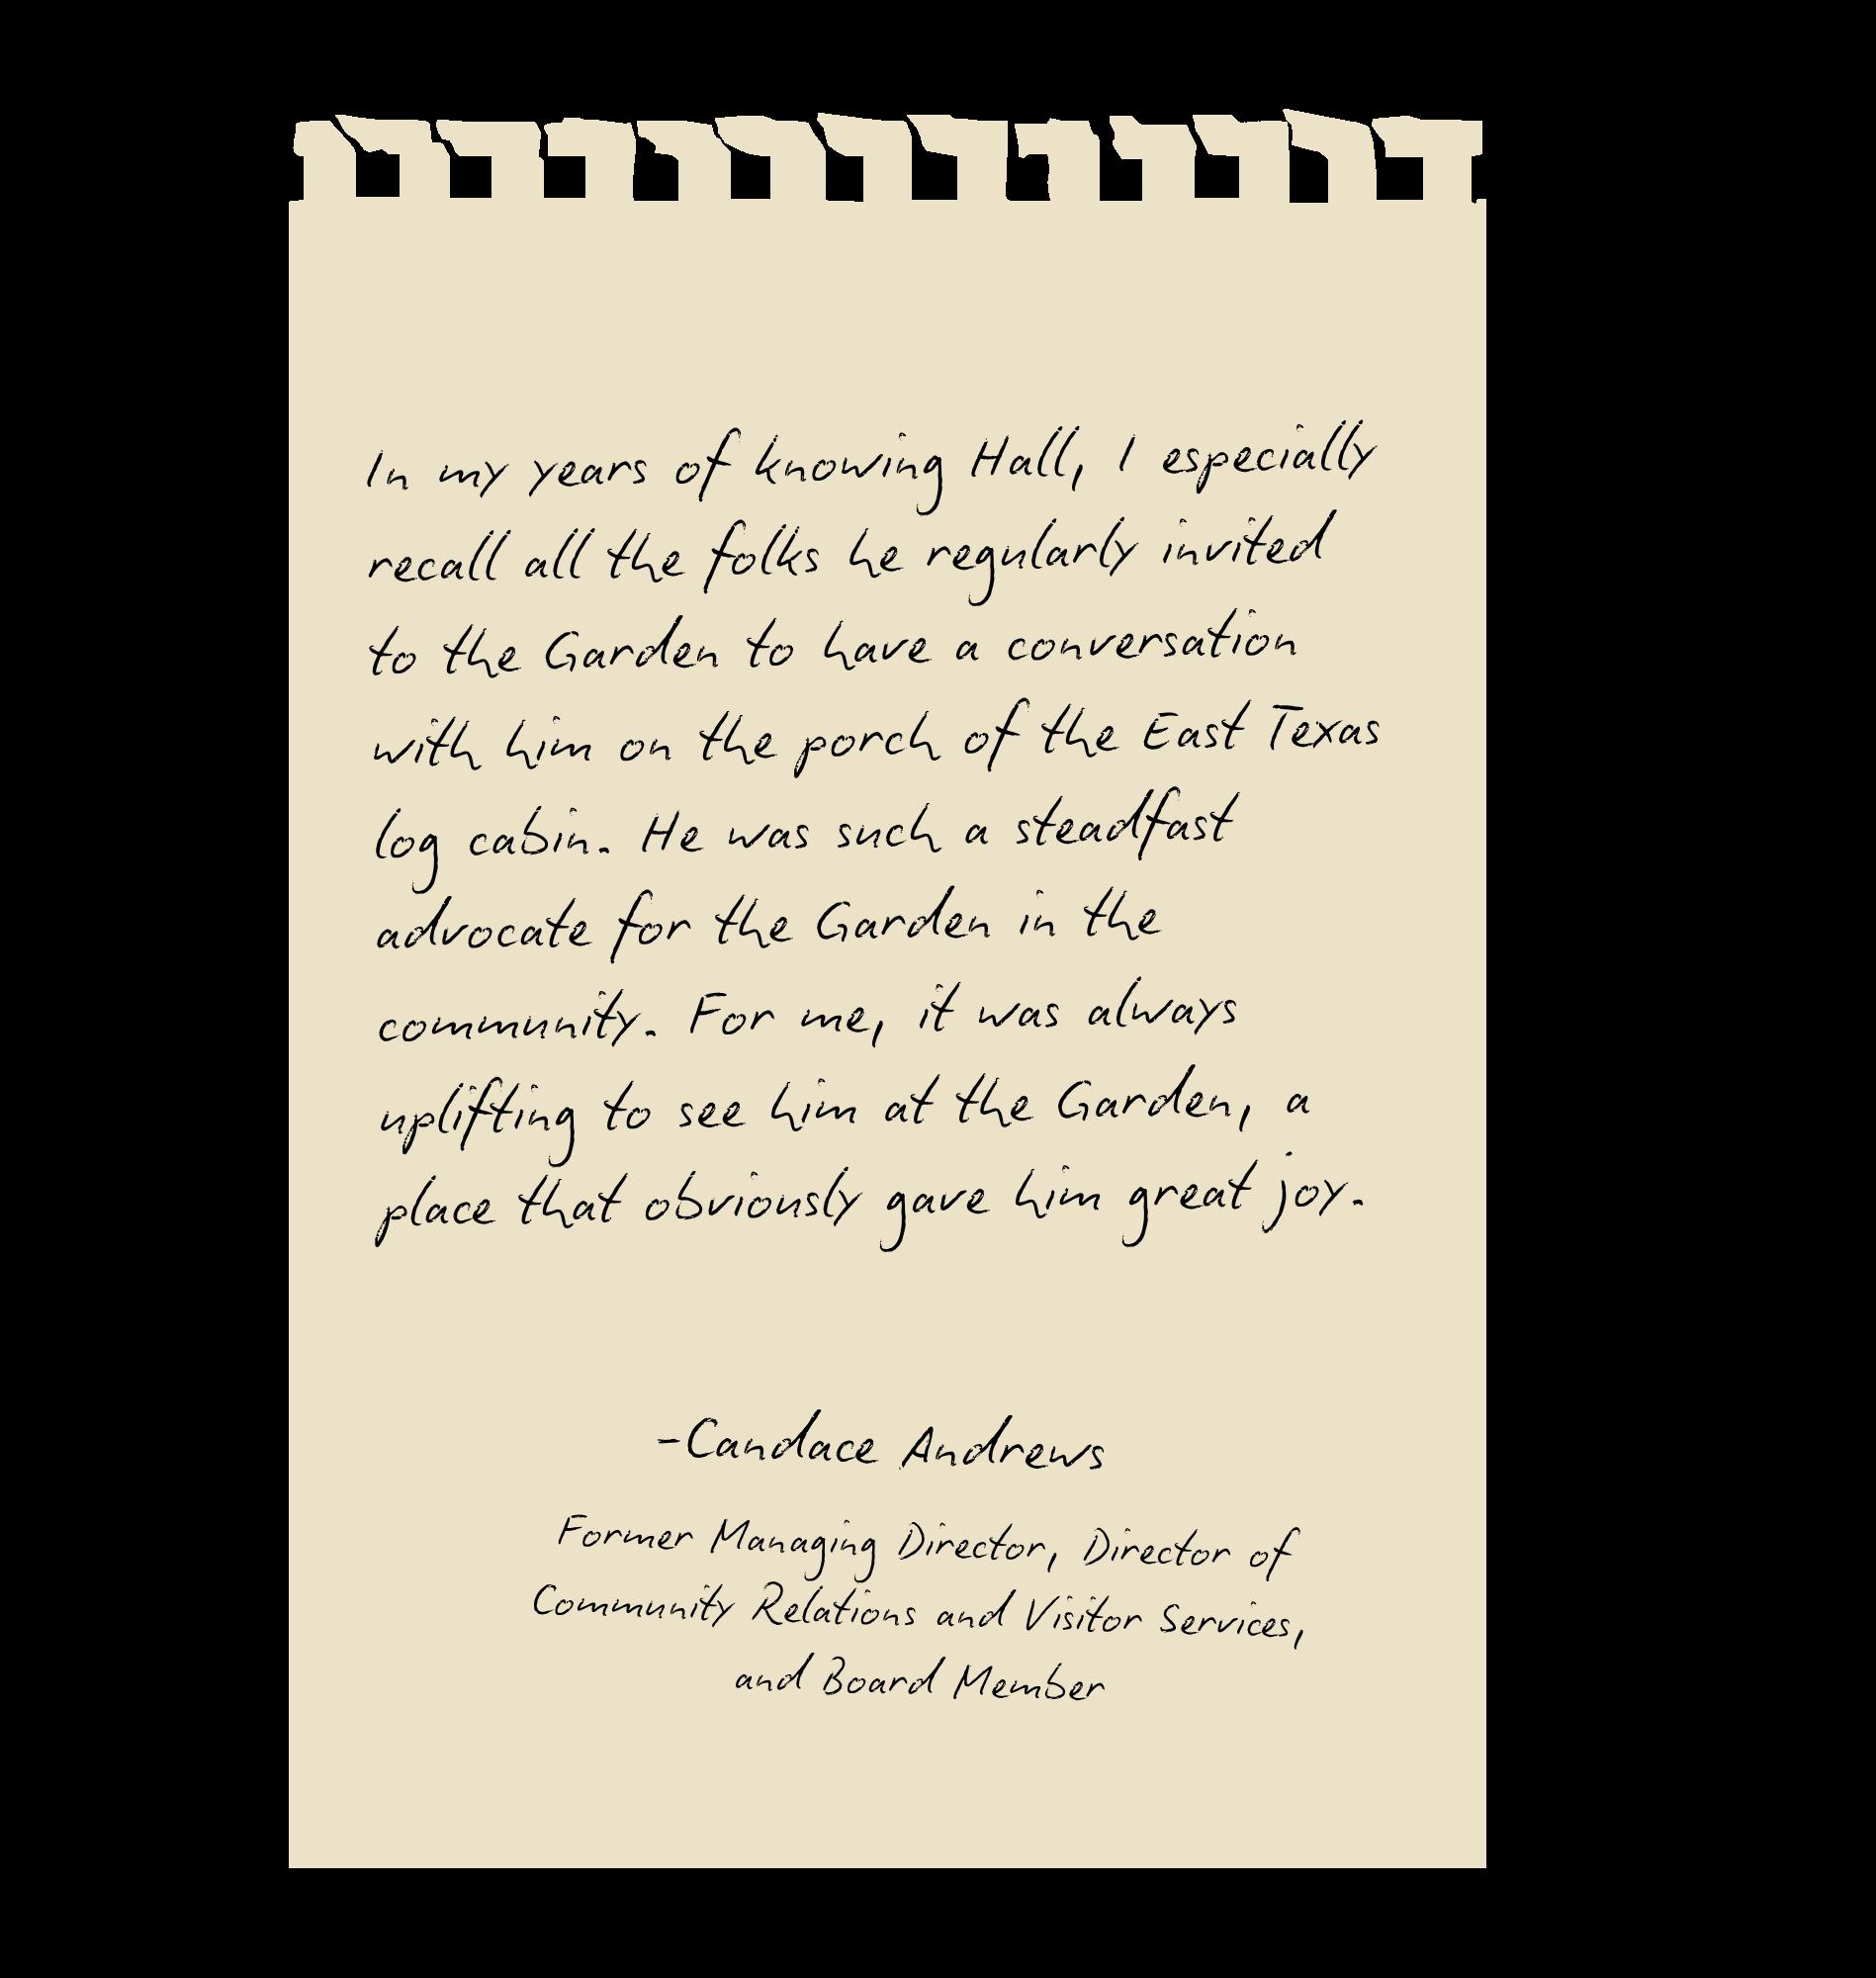 In my years of knowing Hall, I especially
recall all the folks he regularly invited
to the Garden to have a conversation
with him on the porch of the East Texas
log cabin. He was such a steadfast
advocate for the Garden in the
community. For me, it was always
uplifting to see him at the Garden, a
place that obviously gave him great joy.
-Candace Andrews
Former Managing Director, Director of
Community Relations and Visitor Services,
and Board Member